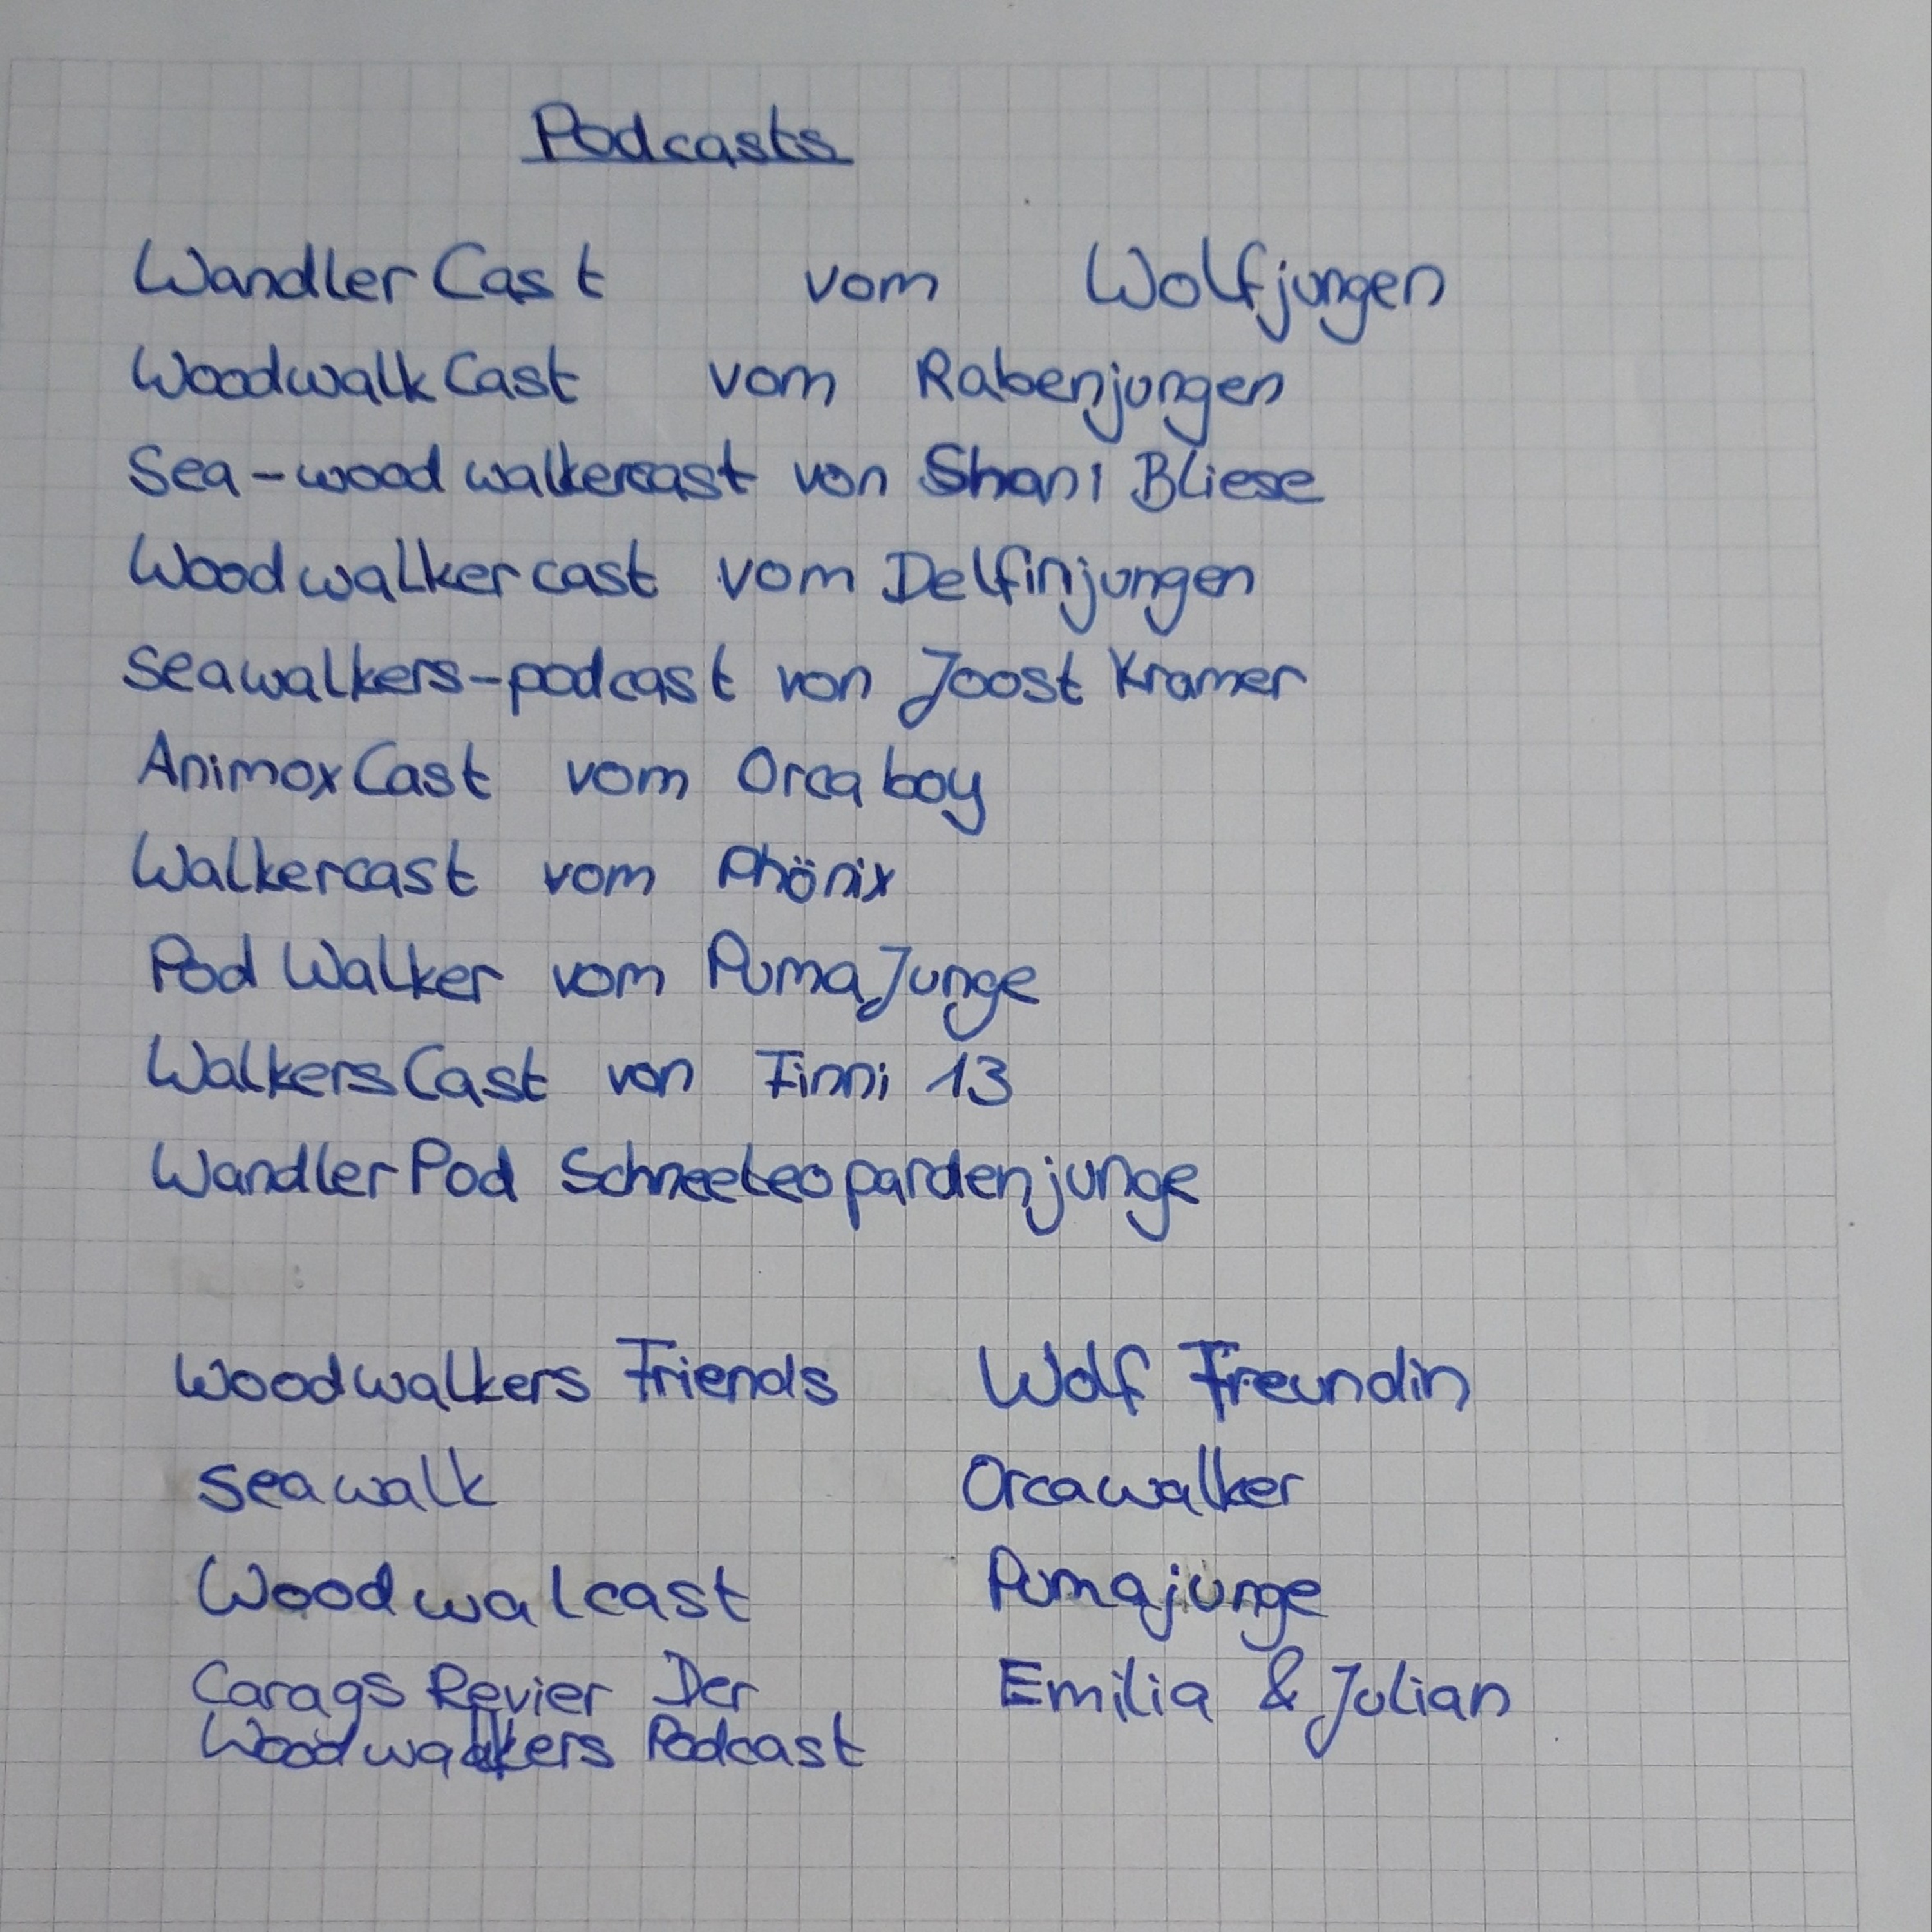 Podcasts
WandlerCast vom Wolfjungen
WoodwalkCast vom Rabenjungen
Sea-woodwalkercast von Shani Bliese
Woodwalkercast vom Delfinjungen
seawalkers-podcast von Joost Kramer
AnimoxCast vom Orcaboy
Walkercast vom Phönix
Pod Walker vom PumaJunge
WalkersCast von Finni 13
WandlerPod Schneeleopardenjunge
Woodwalkers Friends Wolf Freundin
seawalk Orcawalker
Woodwalcast Pumajunge
Carags Revier Der Emilia & Julian
Woodwalkers Podcast